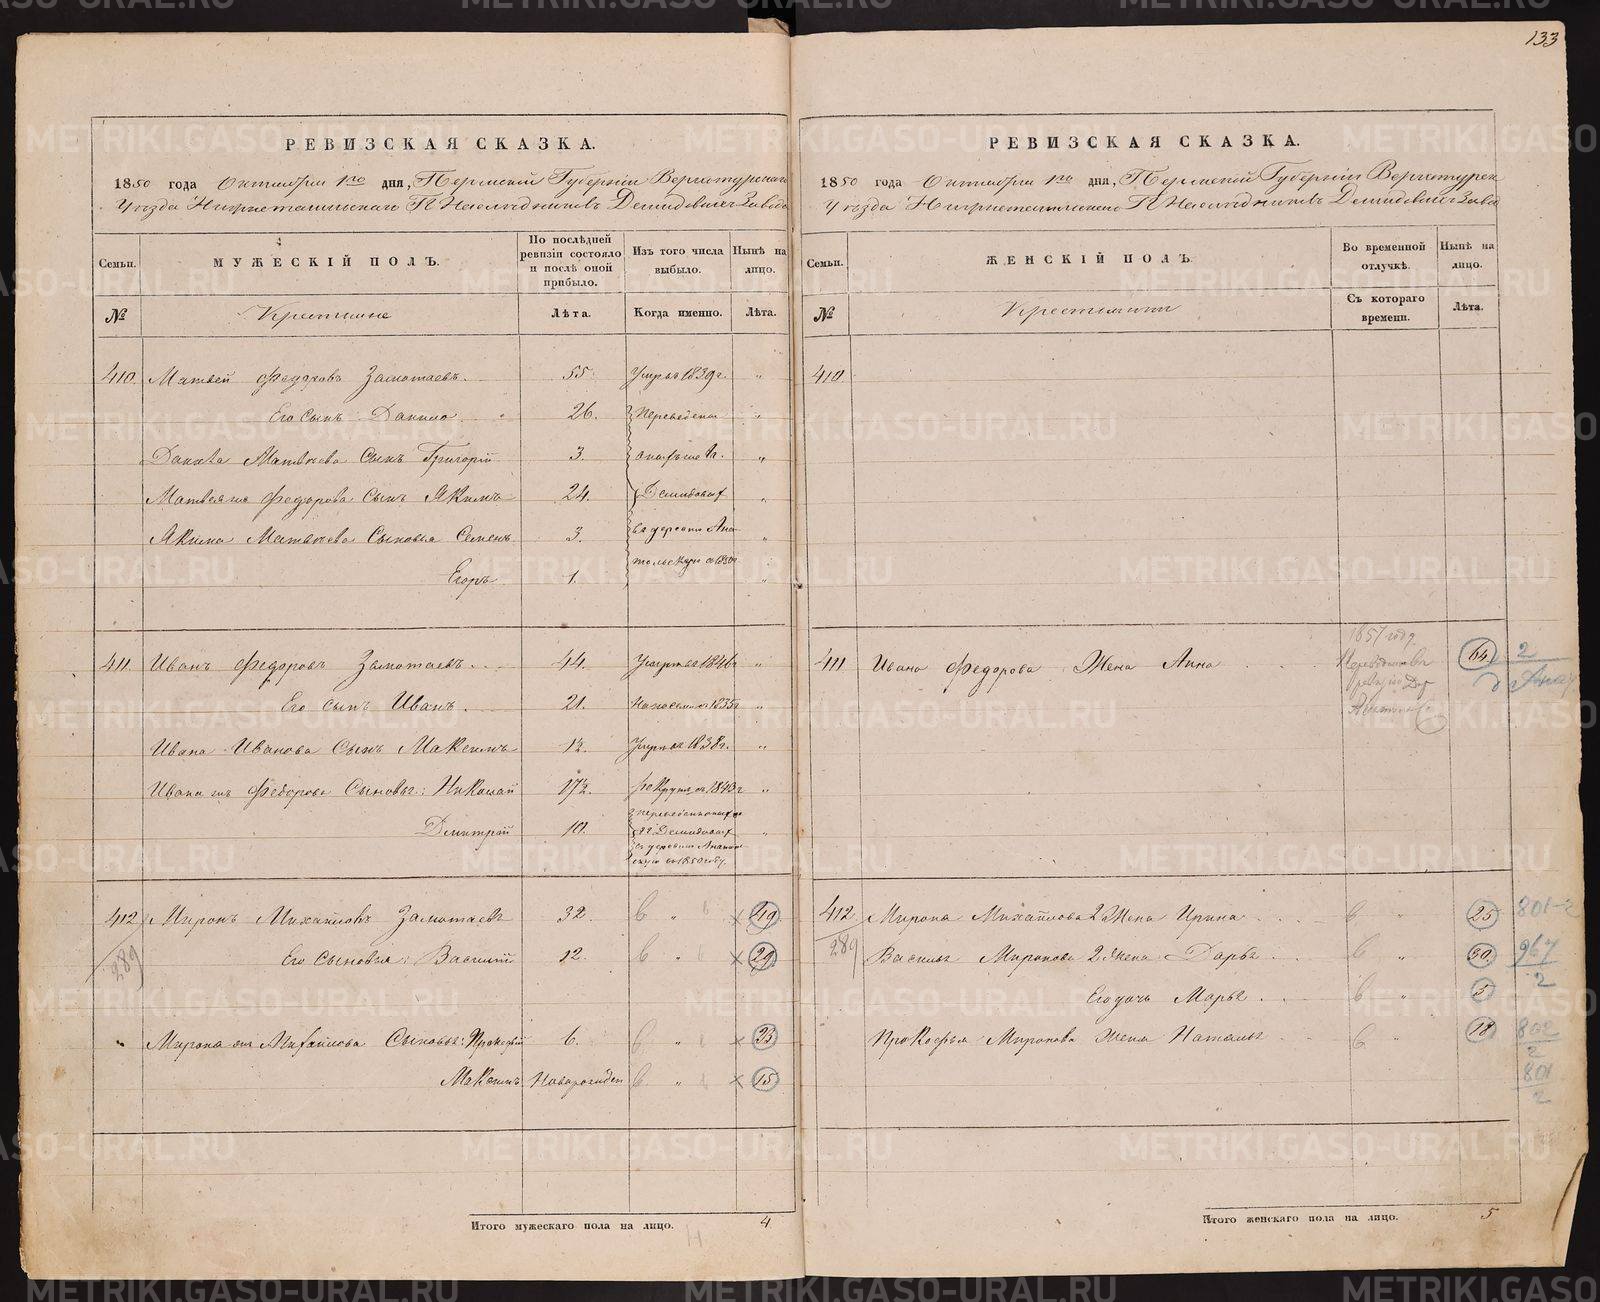 133
РЕВИЗСКАЯ СКАЗКА.
1850 года Октября 1го дня, Пермской Губерніи Верхотурскаго
Уѣзда Нижнетагильскаго Г.Г. Наслѣдниковъ Демидовыхъ Завода
Семьи.
МУЖЕСКІЙ ПОЛЪ.
По послѣдней ревизіи состояло и послѣ оной прибыло.
Изъ того числа выбыло.
Нынѣ на лицо.
№
Крестьяне
Лѣта.
Когда именно.
Лѣта.
410 Матвей Федоровъ Замотаевъ. 55 Умръ 1839г. "
Его сынъ Данило 26. Переведены "
Данила Матвѣева Сынъ Григорій 3. "
Матвея Федорова Сынъ Якимъ 24. Демидовых "
Якима Матвѣева Сыновья Семенъ 3. въ деревню Ана "
Егоръ 1. тольскую въ 1850г "
411. Иванъ Федоровъ Замотаевъ. 44. Умръ 1846г "
Его сынъ Иванъ. 21. На поселен. 1835г "
Ивана Иванова Сынъ Максимъ 1½. Умръ 1838г. "
Ивана Федорова Сыновья: Николай 17½. Рекрут. 1843г "
Дмитрій 10. переведенъ
Г.г Демидовых
въ деревню Анатол
скую въ 1850 году. "
412 Миронъ Михайловъ Замотаевъ 32. " × 49
289 Его Сыновья: Василій 12. " × 29
Мирона Михайлова Сыновья: Прокофій 6. " × 23
Максимъ Новорожден " × 15
Итого мужескаго пола на лицо. 4
РЕВИЗСКАЯ СКАЗКА.
1850 года Октября 1го дня, Пермской Губерніи Верхотурск
Уѣзда Нижнетагильскаго Г.Г. Наслѣдниковъ Демидовыхъ Завод
Семьи.
ЖЕНСКІЙ ПОЛЪ.
Во временной отлучкѣ.
Нынѣ на лицо.
№
Крестьянки
Съ котораго времени.
Лѣта.
410
411 Ивана Федорова Жена Анна 1857 году 64 2
412 Мирона Михайлова 2 Жена Ирина " 25 801-2
289 Василья Миронова 2 Жена Дарья " 30 967/2
Его дочь Марья " 5
Прокофья Миронова Жена Наталья " 18 802/2
801/2
Итого женскаго пола на лицо. 5
METRIKI.GASO-URAL.RU